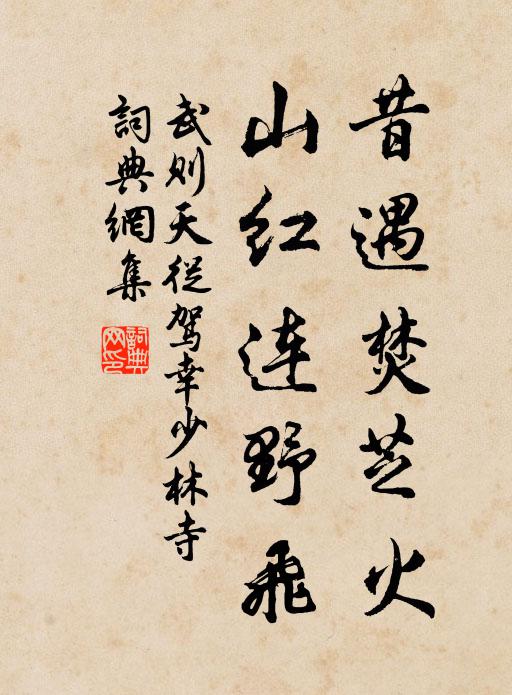 昔遇焚芝火
山红连野飞
武则天從駕幸少林寺
詞典網集
詞典网印